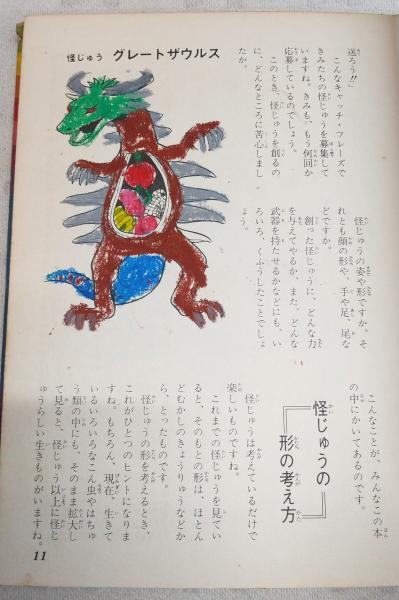 怪じゅう グレートザウルス
送ろう!!」
こんなキャッチ・フレーズで
きみたちの怪じゅうを募集して
いますね。きみも、もう何回か
応募しているのでしょう。
このとき、怪じゅうを創るの
に、どんなところに苦心しまし
たか。
怪じゅうの姿や形ですか。そ
れとも顔の形や、手や足、尾な
どですか。
創った怪じゅうに、どんな力
を与えてやるか、また、どんな
武器を持たせるかなどにも、い
ろいろ、くふうしたことでしょ
う。
こんなことが、みんなこの本
の中にかいてあるのです。
怪じゅうの
形の考え方
怪じゅうは考えているだけで
楽しいものですね。
これまでの怪じゅうを見てい
ると、そのもとの形は、ほとん
どむかしのきょうりゅうなどか
ら、とったものです。
怪じゅうの形を考えるとき、
これがひとつのヒントになりま
すね。もちろん、現在、生きて
いるいろいろなこん虫やはちゅ
う類の中にも、そのまま拡大し
て見ると、怪じゅう以上に怪じ
ゅうらしい生きものがいますね。
11